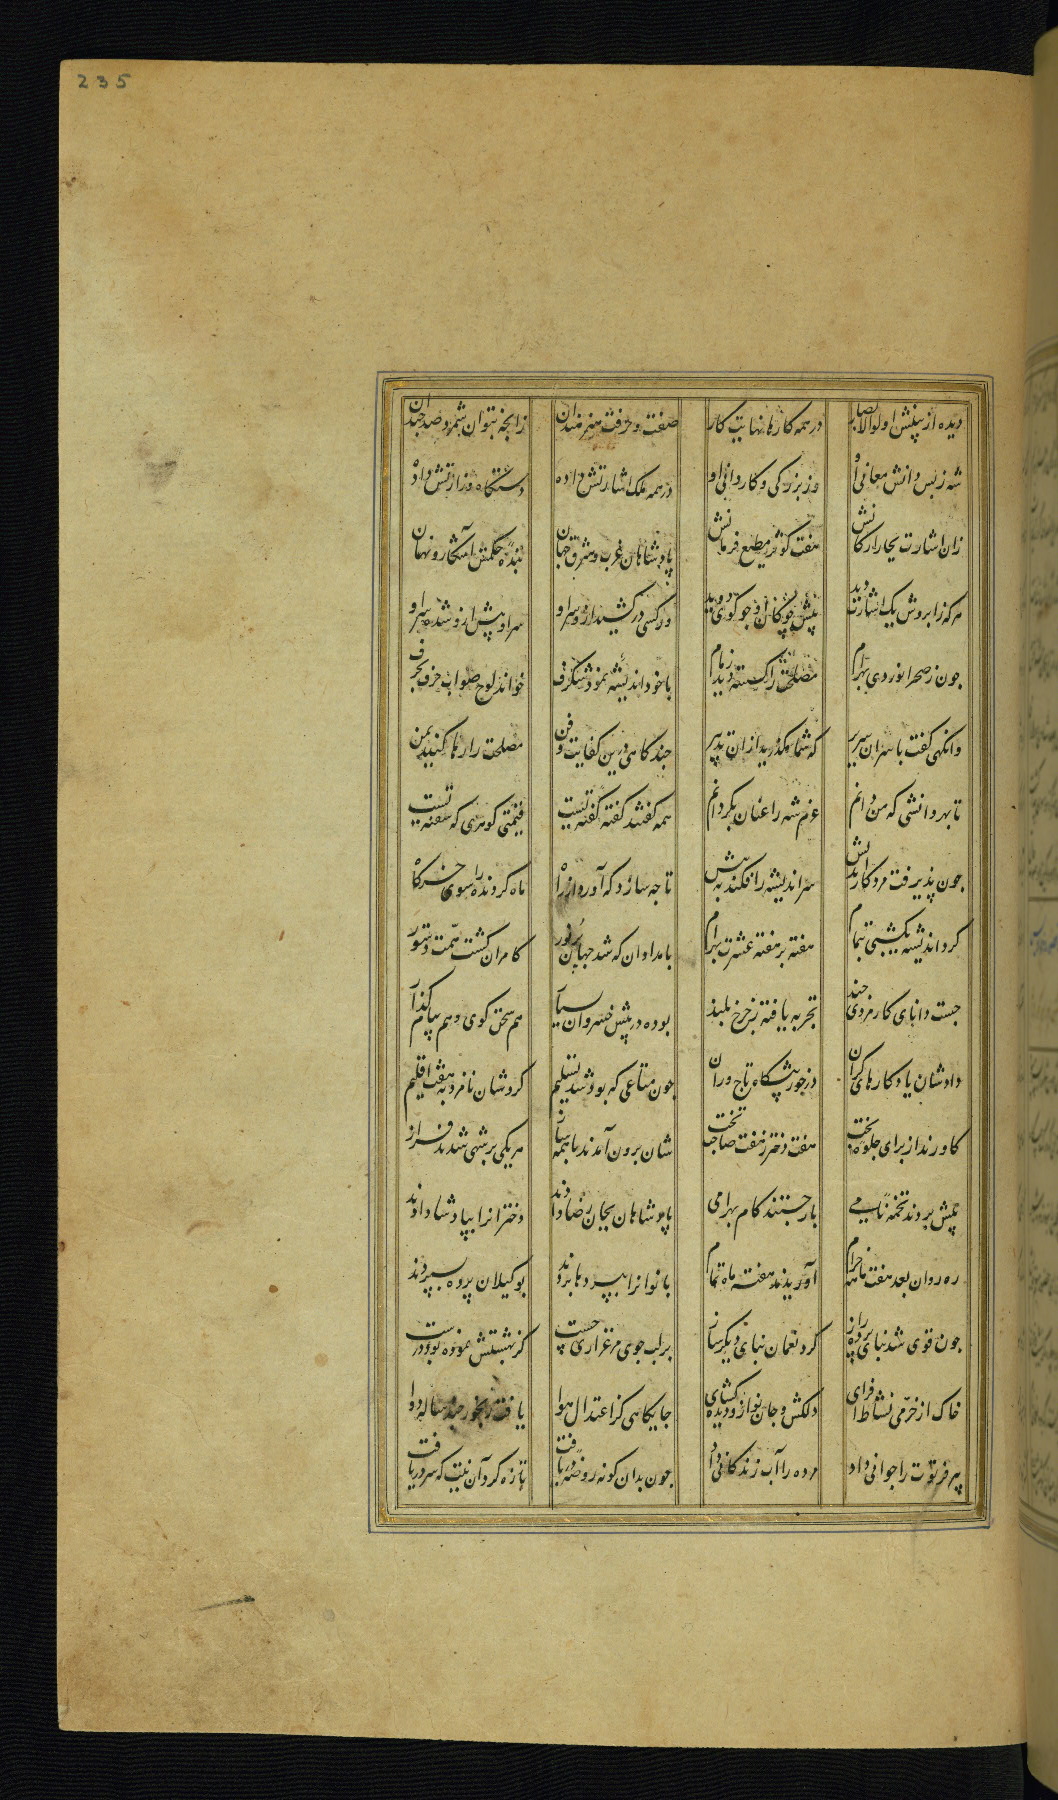 235
دیده از بینش اولوالابصار در همه کارها نهایت کار صفت و حرفت هنرمندان زانچه نتوان شمرد صد چندان
شه ز بس دانش معانی او وز بزرگی و کاردانی او در همه ملک اشارتش داده دستگاه وزارتش داده
زان اشارت بجار ارکانش هفت کشور مطیع فرمانش پادشاهان غرب و شرق جهان بنده حکمش آشکار و نهان
هرکه زابروش یک اشارت دید پیش چوگان او چو گوی دوید ور کسی در کشید ازو سر او سر او پیش ازو شده بر او
چون ز صحرانوردی بهرام مصلحت را گسسته دید زمام با خود اندیشه نمود شگرف خواند لوح صواب حرف بحرف
وانگهی گفت با سران سریر که شما بگذرید ازان تدبیر چند گاهی درین کفایت و فن مصلحت را رها کنید بمن
تا بهر دانشی که من دانم عزم شه را عنان بگردانم همه گفتند گفته گفته تست قیمتی گوهری که سفته تست
چون پذیرفت مرد کار اندیش سر اندیشه را فکند به پیش تا چه سازد که آورد از راه ماه گردنده را سوی خرگاه
کرد اندیشه یکشبی بتمام هفته بر هفته عشرت بهرام بامدادان که شد جهان پر نور کامران گشت همت دستور
جست دانای کار مردی چند تجربه یافته ز چرخ بلند بوده در پیش خسروان بسیار هم سخن گوی و هم پیام گذار
دادشان یادگارهای گران درخور پیشگاه تاجوران چون متاعی که بود شد تسلیم کردشان نامزد به هفت اقلیم
کاورند از برای جلوه بخت هفت دختر ز هفت صاحب تخت شان برون آمدند با همه ساز هر یکی بر شهی شدند فراز
پیش بردند تحفه نامی باز جستند کام بهرامی پادشاهان بجان رضا دادند دخترانرا بپادشا دادند
ره روان بعد هفت ماه خرام آوریدند هفت ماه تمام بانوانرا بپرده‌ها بردند بوکیلان پرده بسپردند
چون قوی شد بنای پرده راز کرد نعمان بنای دیگر ساز بر لب جوی مرغزاری جست کز بهشتش نمونه بود درست
خاک از خرمی نشاط افزای دلکش و جان نواز و دیده گشای جایگاهی کز اعتدال هوا یافت رنجور چند ساله دوا
پیر فرتوت را جوانی داد مرده را آب زندگانی داد چون بدان گونه روضه دریافت تازه کرد آن نیت که سر دریافت